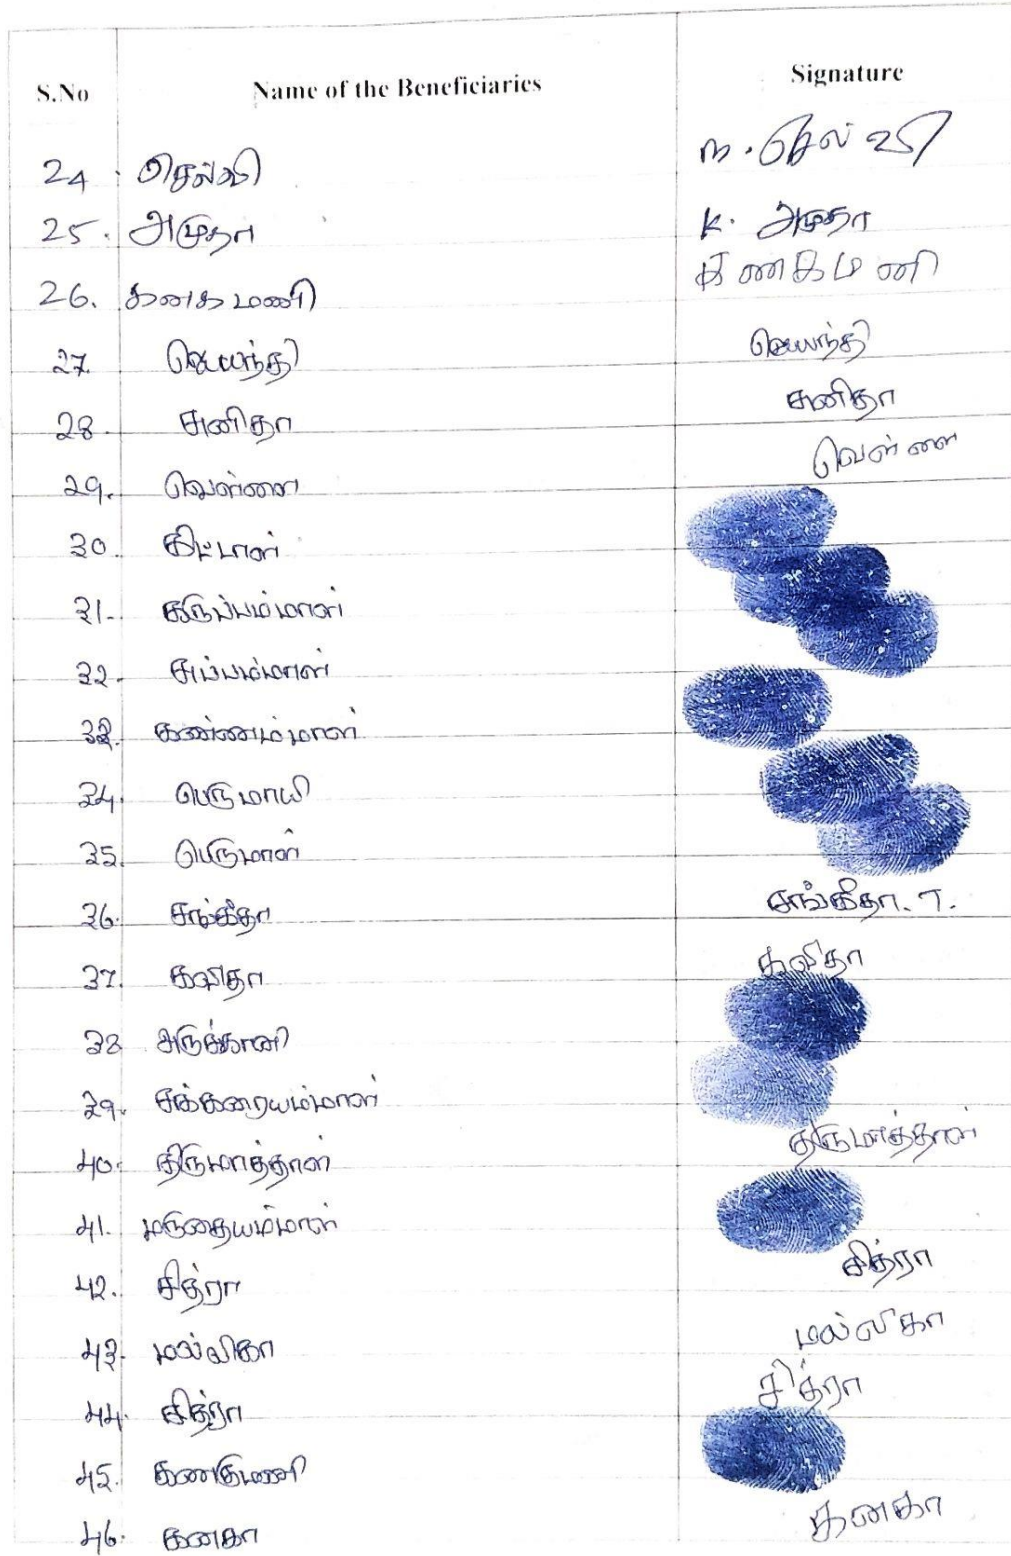 S.No Name of the Beneficiaries Signature
24. செல்வி m. செல்வி
25. அமுதா K. அமுதா
26. கனகமணி கனகமணி
27. ஜெயந்தி ஜெயந்தி
28. சுனிதா சுனிதா
29. வெள்ளை வெள்ளை
30. கிட்டாள்
31. கருப்பம்மாள்
32. சுப்பம்மாள்
33. கண்ணம்மாள்
34. பெருமாயி
35. பெருமாள்
36. சங்கீதா சங்கீதா. T.
37. கவிதா கவிதா
38. அருக்காணி
39. சக்கரையம்மாள்
40. திருமாத்தாள் திருமாத்தாள்
41. மருதையம்மாள்
42. சித்ரா சித்ரா
43. மல்லிகா மல்லிகா
44. சித்ரா சித்ரா
45.
46. கனகா கனகா